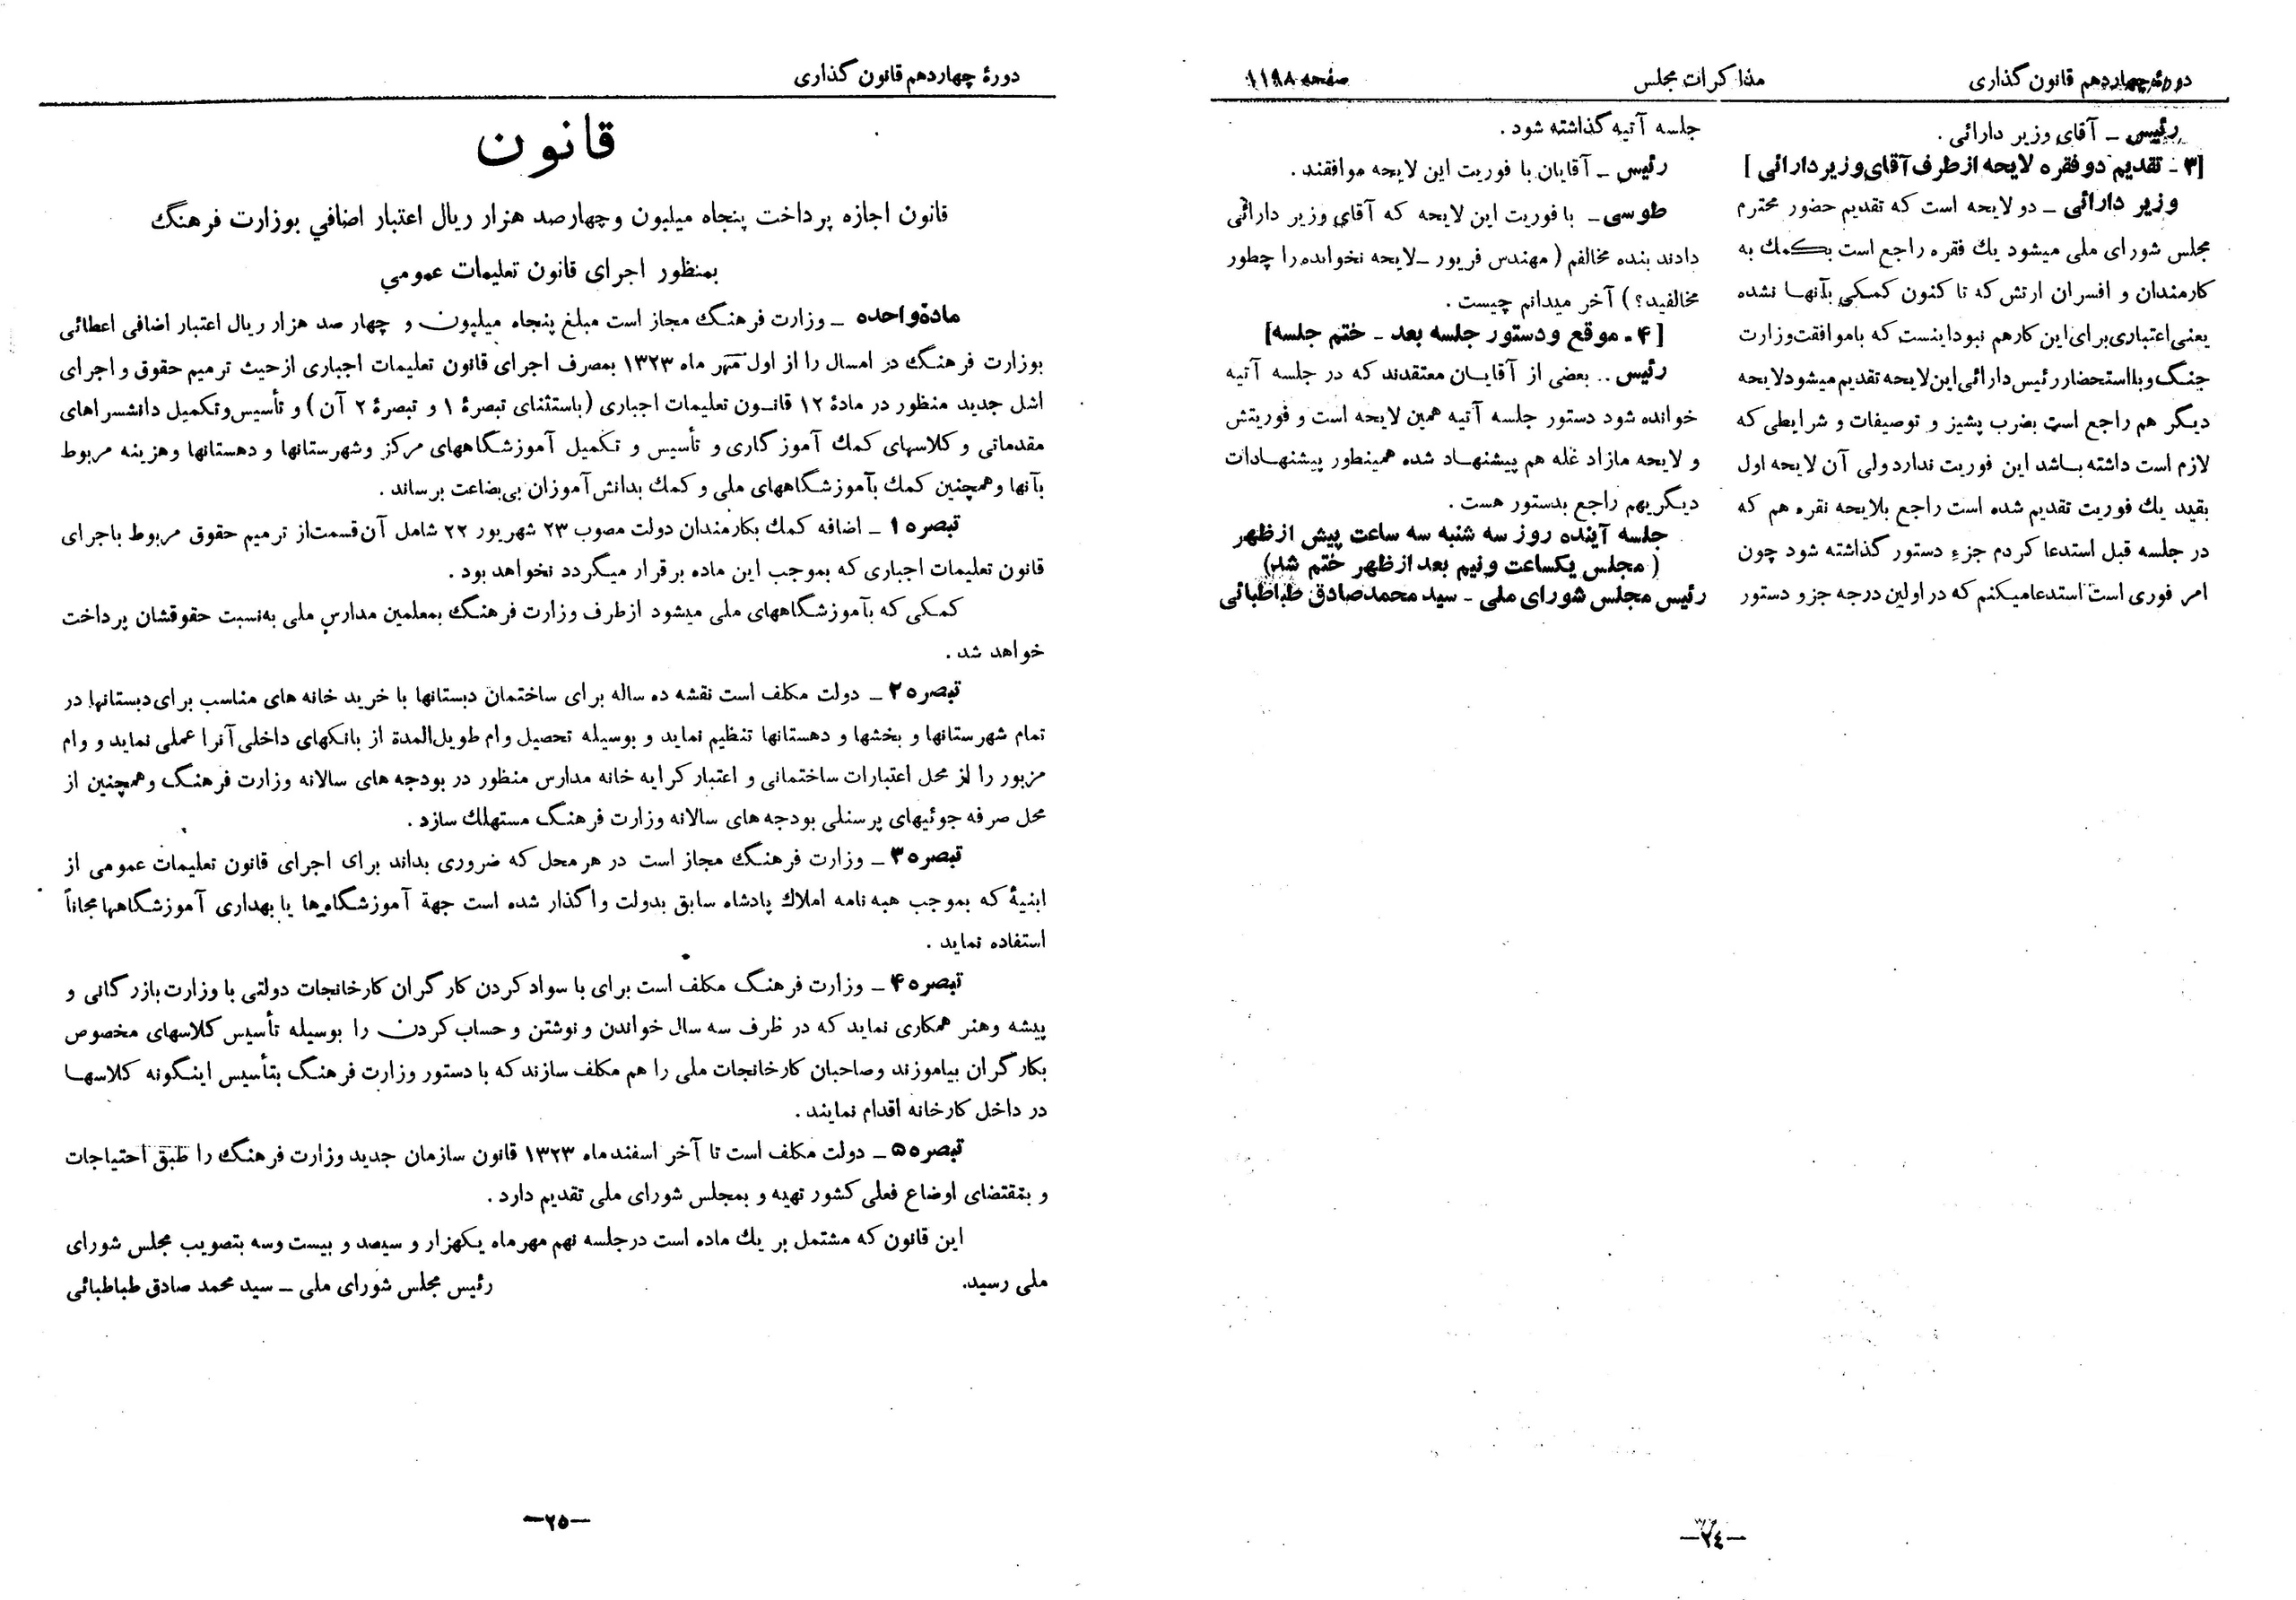 دورۀ چهاردهم قانون گذاری
مذاکرات مجلس
صفحه ۱۱۹۸
رئیس ـ آقای وزیر دارائی .
[۳ ـ تقدیم دو فقره لایحه از طرف آقای وزیر دارائی ]
وزیر دارائی ـ دو لایحه است که تقدیم حضور محترم
مجلس شورای ملی میشود یك فقره راجع است بکمك به
کارمندان و افسران ارتش که تا کنون کمکی بآنها نشده
یعنی اعتباری برای این کار هم نبود اینست که باموافقت وزارت
جنگ و بااستحضار رئیس دارائی این لایحه تقدیم میشود لایحه
دیگر هم راجع است بضرب پشیز و توصیفات و شرایطی که
لازم است داشته باشد این فوریت ندارد ولی آن لایحه اول
بقید یك فوریت تقدیم شده است راجع بلایحه نقره هم که
در جلسه قبل استدعا کردم جزء دستور گذاشته شود چون
امر فوری است استدعا میکنم که در اولین درجه جزو دستور
جلسه آتیه گذاشته شود .
رئیس ـ آقایان با فوریت این لایحه موافقند .
طوسی ـ با فوریت این لایحه که آقای وزیر دارائی
دادند بنده مخالفم ( مهندس فریور ـ لایحه نخوانده را چطور
مخالفید؟ ) آخر میدانم چیست .
[ ۴ ـ موقع و دستور جلسه بعد ـ ختم جلسه]
رئیس .. بعضی از آقایان معتقدند که در جلسه آتیه
خوانده شود دستور جلسه آتیه همین لایحه است و فوریتش
و لایحه مازاد غله هم پیشنهاد شده همینطور پیشنهادات
دیگریهم راجع بدستور هست .
جلسه آینده روز سه شنبه سه ساعت پیش از ظهر
( مجلس یکساعت و نیم بعد از ظهر ختم شد)
رئیس مجلس شورای ملی ـ سید محمد صادق طباطبائی
ـ۲٤ـ
دورۀ چهاردهم قانون گذاری
قانون
قانون اجازه پرداخت پنجاه میلیون و چهارصد هزار ریال اعتبار اضافي بوزارت فرهنگ
بمنظور اجرای قانون تعلیمات عمومي
مادۀ واحده ـ وزارت فرهنگ مجاز است مبلغ پنجاه میلیون و چهار صد هزار ریال اعتبار اضافی اعطائی
بوزارت فرهنگ در امسال را از اول مهر ماه ۱۳۲۳ بمصرف اجرای قانون تعلیمات اجباری از حیث ترمیم حقوق و اجرای
اشل جدید منظور در مادۀ ۱۲ قانون تعلیمات اجباری (باستثنای تبصرۀ ۱ و تبصرۀ ۲ آن ) و تأسیس و تکمیل دانشسراهای
مقدماتی و کلاسهای کمك آموزگاری و تأسیس و تکمیل آموزشگاههای مرکز و شهرستانها و دهستانها و هزینه مربوط
بآنها و همچنین کمك بآموزشگاههای ملی و کمك بدانش آموزان بی‌بضاعت برساند .
تبصره ۱ ـ اضافه کمك بکارمندان دولت مصوب ۲۳ شهریور ۲۲ شامل آن قسمت از ترمیم حقوق مربوط باجرای
قانون تعلیمات اجباری که بموجب این ماده برقرار میگردد نخواهد بود .
کمکی که بآموزشگاههای ملی میشود از طرف وزارت فرهنگ بمعلمین مدارس ملی به‌نسبت حقوقشان پرداخت
خواهد شد .
تبصره ۲ ـ دولت مکلف است نقشه ده ساله برای ساختمان دبستانها با خرید خانه های مناسب برای دبستانها در
تمام شهرستانها و بخشها و دهستانها تنظیم نماید و بوسیله تحصیل وام طویل‌المدة از بانکهای داخلی آنرا عملی نماید و وام
مزبور را از محل اعتبارات ساختمانی و اعتبار کرایه خانه مدارس منظور در بودجه های سالانه وزارت فرهنگ و همچنین از
محل صرفه جوئیهای پرسنلی بودجه های سالانه وزارت فرهنگ مستهلك سازد .
تبصره ۳ ـ وزارت فرهنگ مجاز است در هر محل که ضروری بداند برای اجرای قانون تعلیمات عمومی از
ابنیۀ که بموجب هبه نامه املاك پادشاه سابق بدولت واگذار شده است جهة آموزشگاه‌ها یا بهداری آموزشگاهها مجاناً
استفاده نماید .
تبصره ۴ ـ وزارت فرهنگ مکلف است برای با سواد کردن کارگران کارخانجات دولتی با وزارت بازرگانی و
پیشه و هنر همکاری نماید که در ظرف سه سال خواندن و نوشتن و حساب کردن را بوسیله تأسیس کلاسهای مخصوص
بکارگران بیاموزند و صاحبان کارخانجات ملی را هم مکلف سازند که با دستور وزارت فرهنگ بتأسیس اینگونه کلاسها
در داخل کارخانه اقدام نمایند .
تبصره ۵ ـ دولت مکلف است تا آخر اسفند ماه ۱۳۲۳ قانون سازمان جدید وزارت فرهنگ را طبق احتیاجات
و بمقتضای اوضاع فعلی کشور تهیه و بمجلس شورای ملی تقدیم دارد .
این قانون که مشتمل بر یك ماده است در جلسه نهم مهرماه یکهزار و سیصد و بیست و سه بتصویب مجلس شورای
ملی رسید.
رئیس مجلس شورای ملی ـ سید محمد صادق طباطبائی
ـ۲۵ـ